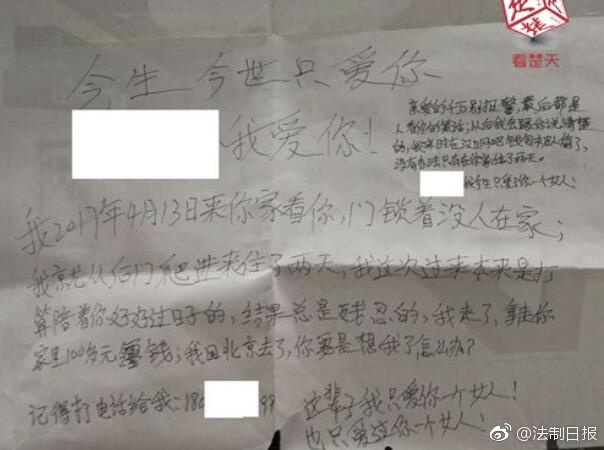 看楚天
今生今世只爱你
我爱你!
亲爱的千万别报警,最后都是
人看你的笑话;以后我会跟你说清楚
的,我来时在汉口网吧钱包被人偷了,
没有办法只有在你家住了两天。
我今生只爱你一个女人!
我2017年4月13日来你家看你,门锁着没人在家;
我就从后门爬进来住了两天,我这次过来本来是打
算陪着你好好过日子的,结果总是残忍的,我走了,拿走你
家里100多元零钱;我回北京去了,你要是想我了怎么办?
记得打电话给我:18 99
这辈子我只爱你一个女人!
也只爱过你一个女人!
@法制日报